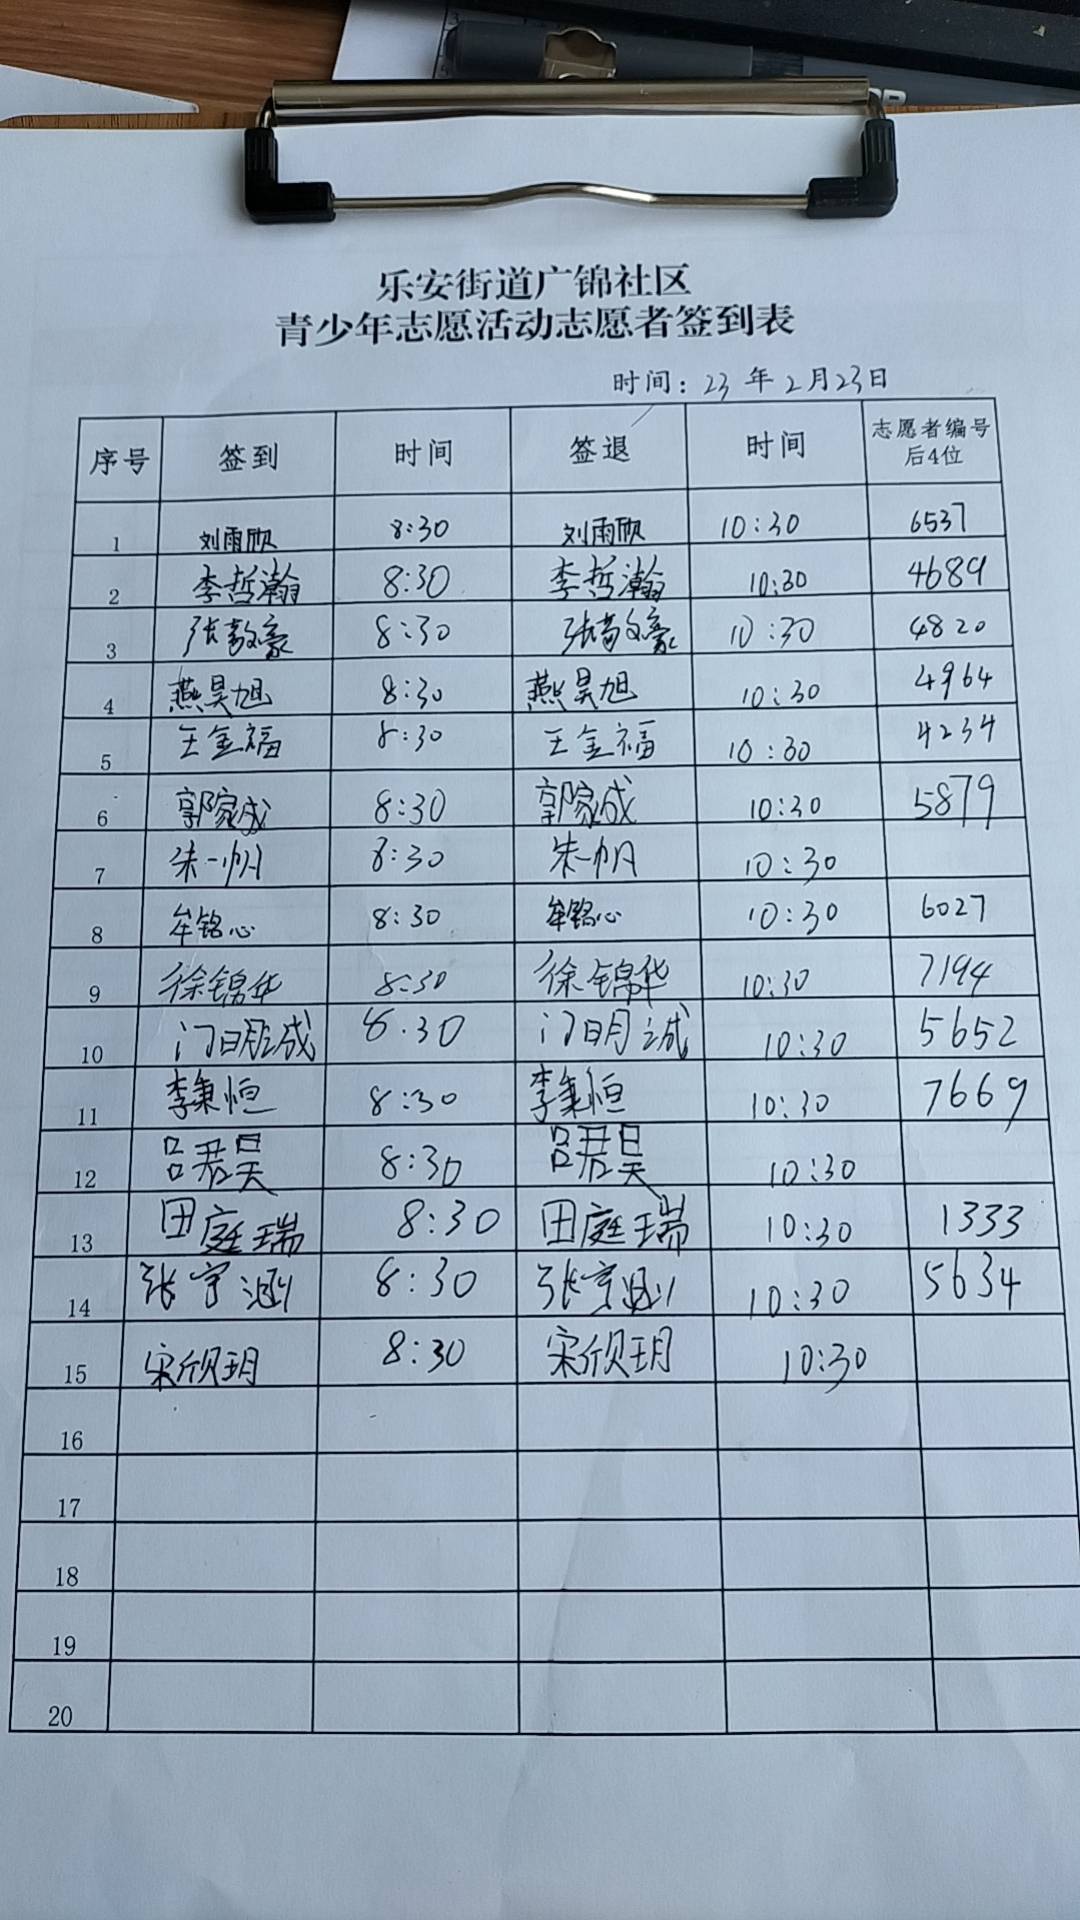 乐安街道广锦社区
青少年志愿活动志愿者签到表
时间：23年2月23日
序号 签到 时间 签退 时间 志愿者编号后4位
1 刘雨欣 8:30 刘雨欣 10:30 6537
2 李哲瀚 8:30 李哲瀚 10:30 4689
3 8:30 10:30 4820
4 燕昊旭 8:30 燕昊旭 10:30 4964
5 王金福 8:30 王金福 10:30 4234
6 郭家成 8:30 郭家成 10:30 5879
7 朱一帆 8:30 朱一帆 10:30
8 牟铭心 8:30 牟铭心 10:30 6027
9 徐锦华 8:30 徐锦华 10:30 7194
10 8:30 10:30 5652
11 李秉恒 8:30 李秉恒 10:30 7669
12 吕君昊 8:30 吕君昊 10:30
13 田庭瑞 8:30 田庭瑞 10:30 1333
14 8:30 10:30 5634
15 宋欣玥 8:30 宋欣玥 10:30
16
17
18
19
20